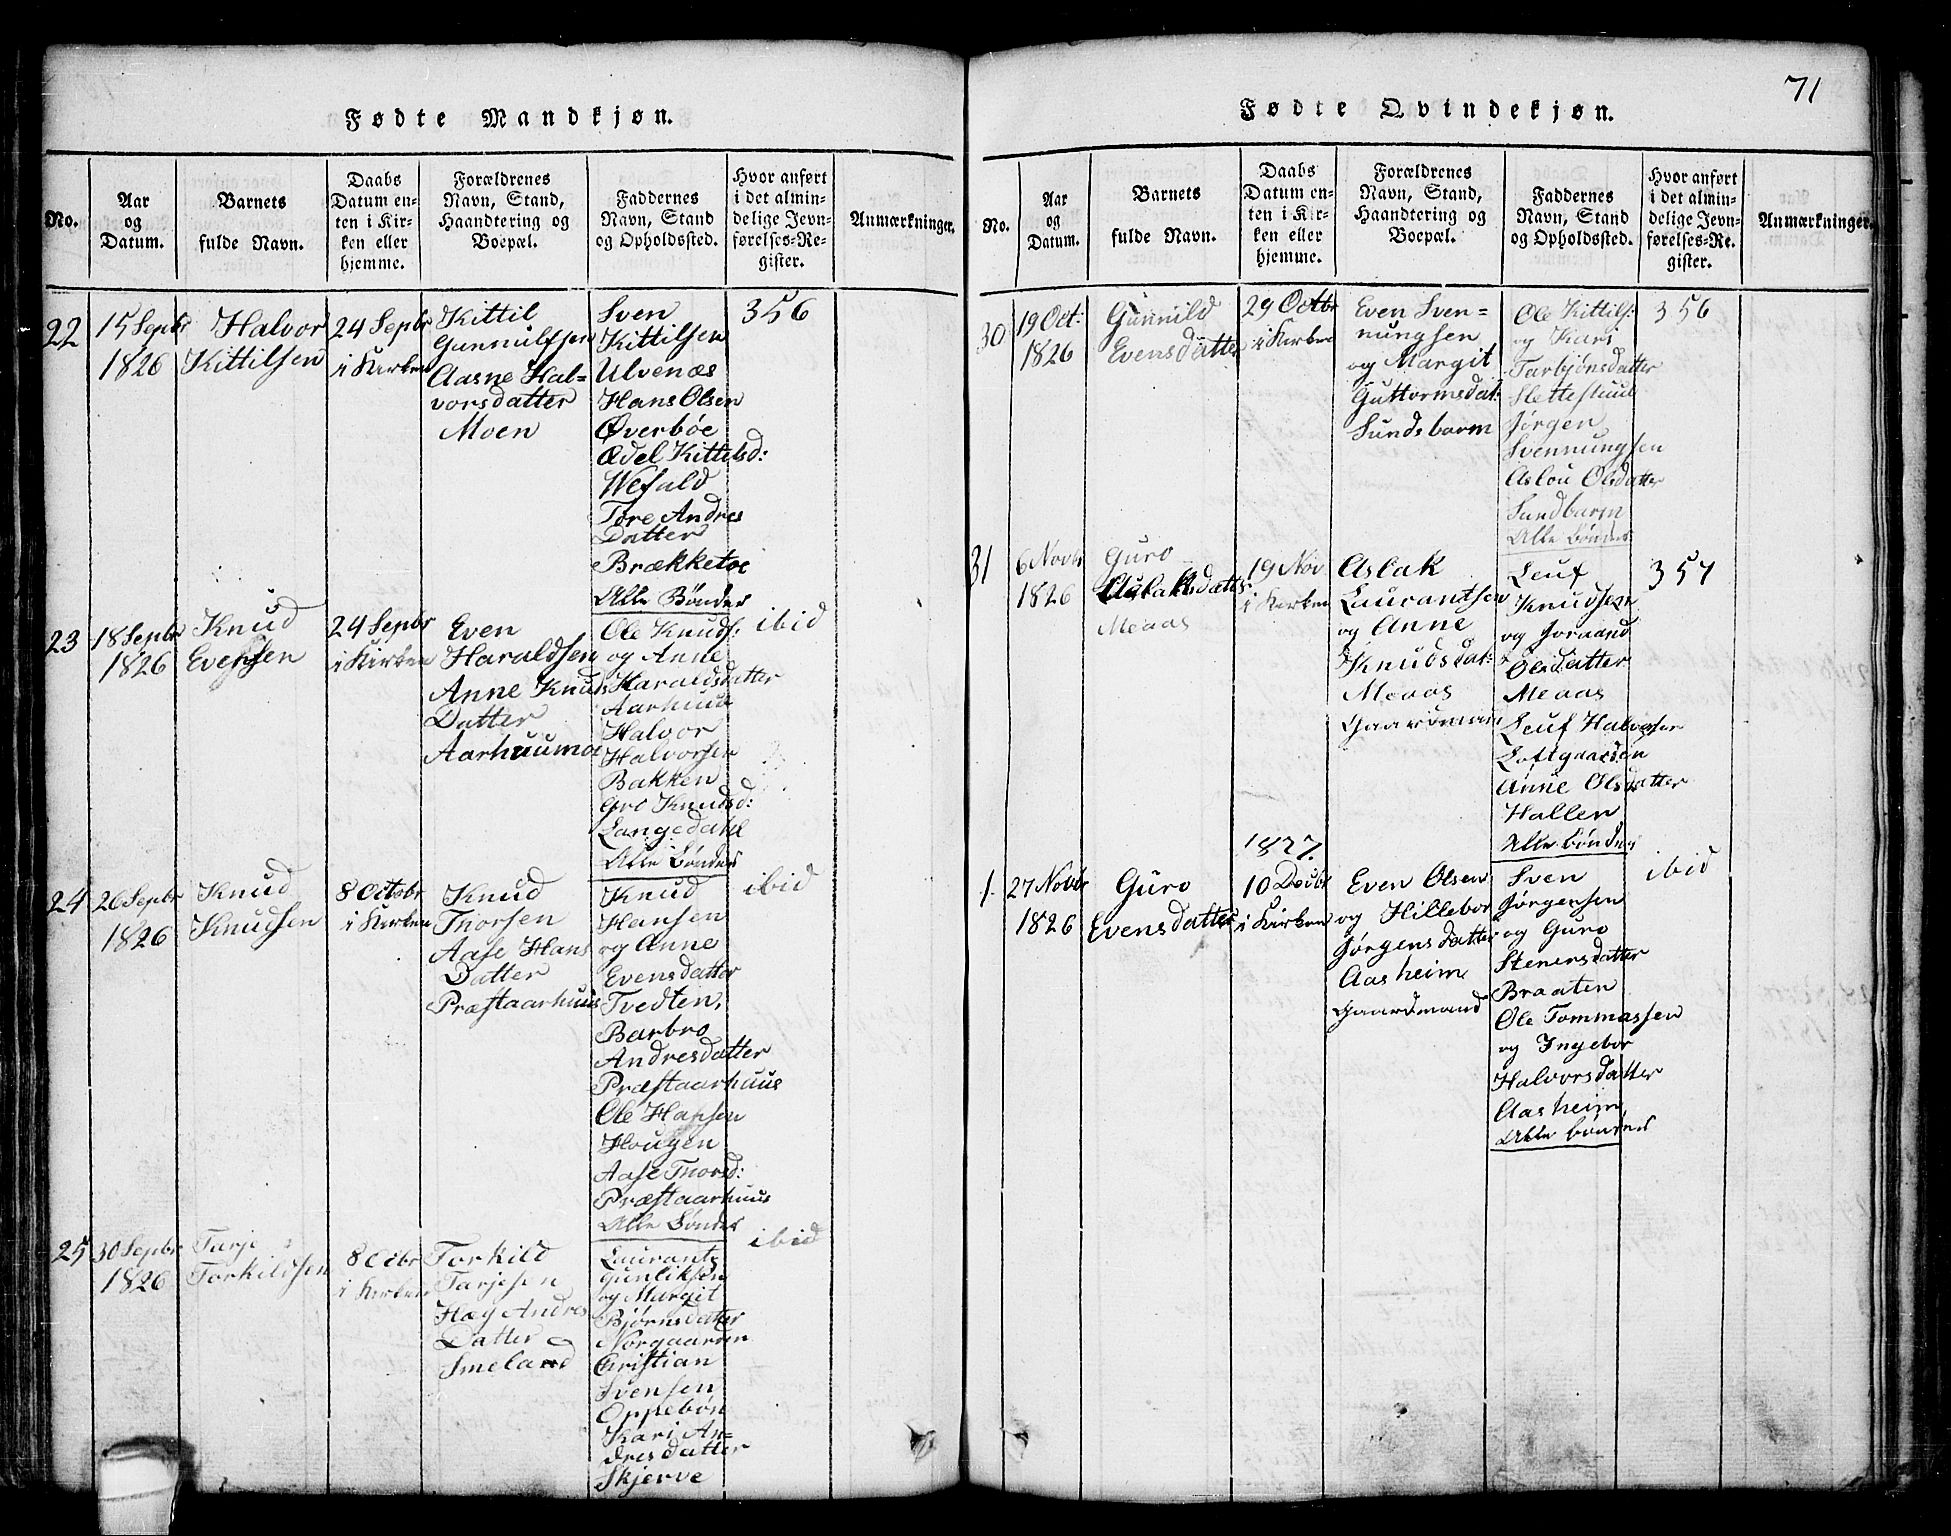 71
Fødte Mandkjøn.
No.
Aar
og
Datum.
Barnets
fulde Navn.
Daabs
Datum en-
ten i Kir-
ken eller
hjemme.
Forældrenes
Navn, Stand,
Haandtering og
Boepæl.
Faddernes
Navn, Stand
og Opholdssted.
Hvor anført
i det almin-
delige Jevn-
førelses-Re-
gister.
Anmærkninger.
22
15 Sepbr
1826
Halvor
Kittilsen
24 Sepbr
i Kirken
Kittil
Gunnulfsen
Aasne Hal-
vorsdatter
Moen
Sven
Kittilsen
Ulvenæs
Hans Olsen
Øverbøe
Ædel Kittelsd:
Wefald
Tore Andres
Datter
Brækketoe
Alle Bønder
356
23
18 Sepbr
1826
Knud
Evensen
24 Sepbr
i Kirken
Even
Haraldsen
Anne Knuds
Datter
Aarhuumoe
Ole Knuds:
og Anne
Haraldsdatter
Aarhuus
Halvor
Halvorsen
Bakken
Gro Knudsd:
Langedahl
Alle Bønder
ibid
24
26 Sepbr
1826
Knud
Knudsen
8 Octobr
i Kirken
Knud
Thorsen
Aase Hans
Datter
Præstaarhuus
Knud
Hansen
og Anne
Evensdatter
Tvedten,
Barbro
Andresdatter
Præstaarhuus
Ole Hansen
Hougen
Aase Thorsd:
Præstaarhuus
Alle Bønder
ibid
25
30 Sepbr
1826
Tarje
Torkildsen
8 Octbr
i Kirken
Torkild
Tarjesen
Hæg Andres
Datter
Smeland
Laurantz
Gunliksen
og Margit
Bjørnsdatter
Norgaarden
Christian
Svensen
Oppebøn
Kari An-
dresdatter
Skjerve
ibid
Fødte Qvindekjøn.
No.
Aar
og
Datum.
Barnets
fulde Navn.
Daabs
Datum en-
ten i Kir-
ken eller
hjemme.
Forældrenes
Navn, Stand,
Haandtering og
Boepæl.
Faddernes
Navn, Stand
og Opholdssted.
Hvor anført
i det almin-
delige Jevn-
førelses-Re-
gister.
Anmærkninger.
30
19 Oct:
1826
Gunnild
Evensdatter
29 Octbr
i Kirken
Even Sven-
nungsen
og Margit
Guttormsdat:
Sundsbarm
Ole Kittils:
og Kari
Tarbjønsdatter
Slettestuul
Jørgen
Svennungsen
Aslou Olsdatter
Sundbarm
Alle Bønder
356
31
6 Novbr
1826
Guro
Aslaksdatter
Meaas
19 Nov
i Kirken
Aslak
Laurantsen
og Anne
Knudsdat:
Meaas
Gaardmann
Leuf
Knudsen
og Joraand
Olsdatter
Meaas
Leuf Halvorsen
Loftgaarden
Anne Olsdatter
Hallen
Alle bønder
357
1827.
1.
27 Novbr
1826
Guro
Evensdatter
10 Decbr
i Kirken
Even Olsen
og Hillebor
Jørgensdatter
Aasheim
Gaardmand
Sven
Jørgensen
og Guro
Stenersdatter
Braaten
Ole Tommassen
og Ingebor
Halvorsdatter
Aasheim
Alle bønder
ibid